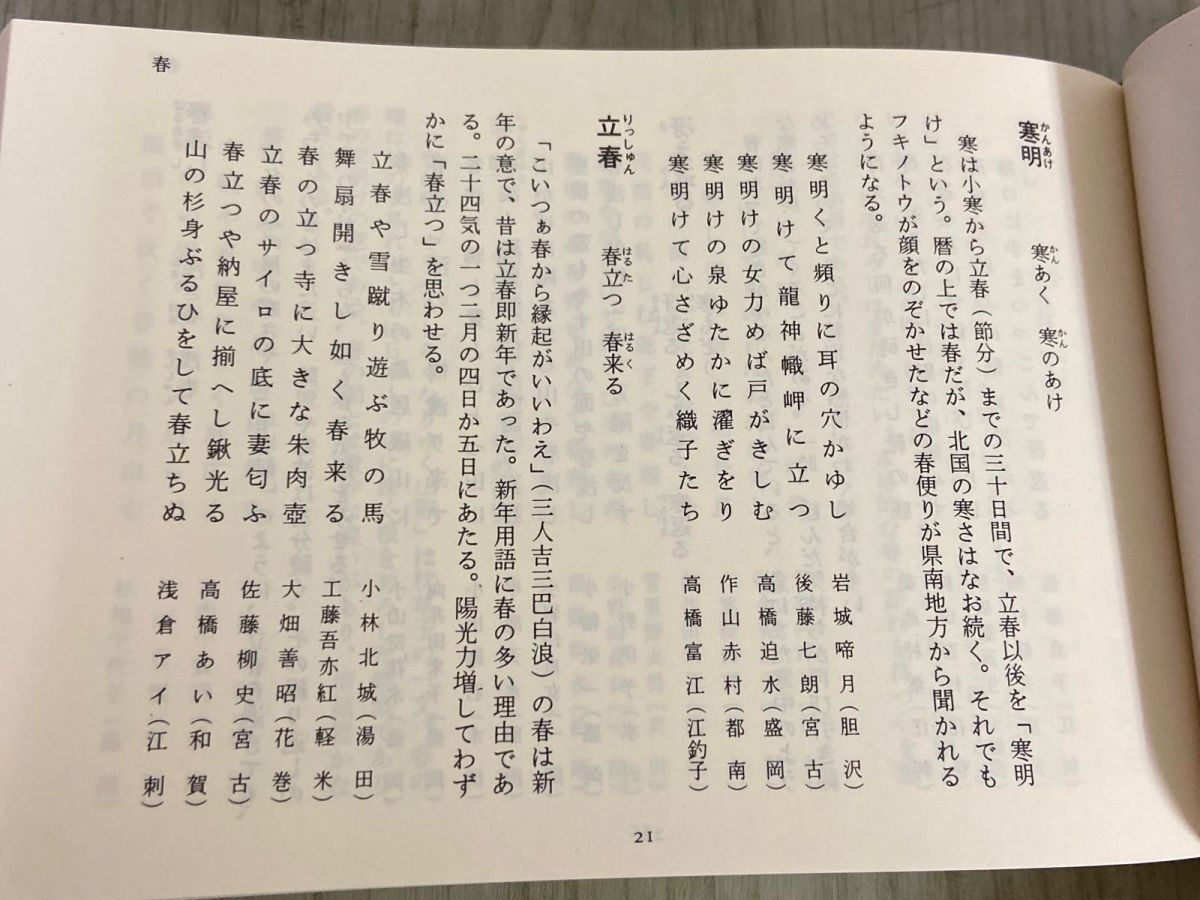 春
寒明 寒あく 寒のあけ
かんあけ かん かん
寒は小寒から立春（節分）までの三十日間で、立春以後を「寒明
け」という。暦の上では春だが、北国の寒さはなお続く。それでも
フキノトウが顔をのぞかせたなどの春便りが県南地方から聞かれる
ようになる。
寒明くと頻りに耳の穴かゆし 岩城啼月（胆沢）
寒明けて龍神幟岬に立つ 後藤七朗（宮古）
寒明けの女力めば戸がきしむ 高橋迫水（盛岡）
寒明けの泉ゆたかに濯ぎをり 作山赤村（都南）
寒明けて心さざめく織子たち 高橋富江（江釣子）
立春 春立つ 春来る
りっしゅん はるた はるく
「こいつぁ春から縁起がいいわえ」（三人吉三巴白浪）の春は新
年の意で、昔は立春即新年であった。新年用語に春の多い理由であ
る。二十四気の一つ二月の四日か五日にあたる。陽光力増してわず
かに「春立つ」を思わせる。
立春や雪蹴り遊ぶ牧の馬 小林北城（湯田）
舞扇開きし如く春来る 工藤吾亦紅（軽米）
春の立つ寺に大きな朱肉壺 大畑善昭（花巻）
立春のサイロの底に妻匂ふ 佐藤柳史（宮古）
春立つや納屋に揃へし鍬光る 高橋あい（和賀）
山の杉身ぶるひをして春立ちぬ 浅倉アイ（江刺）
21